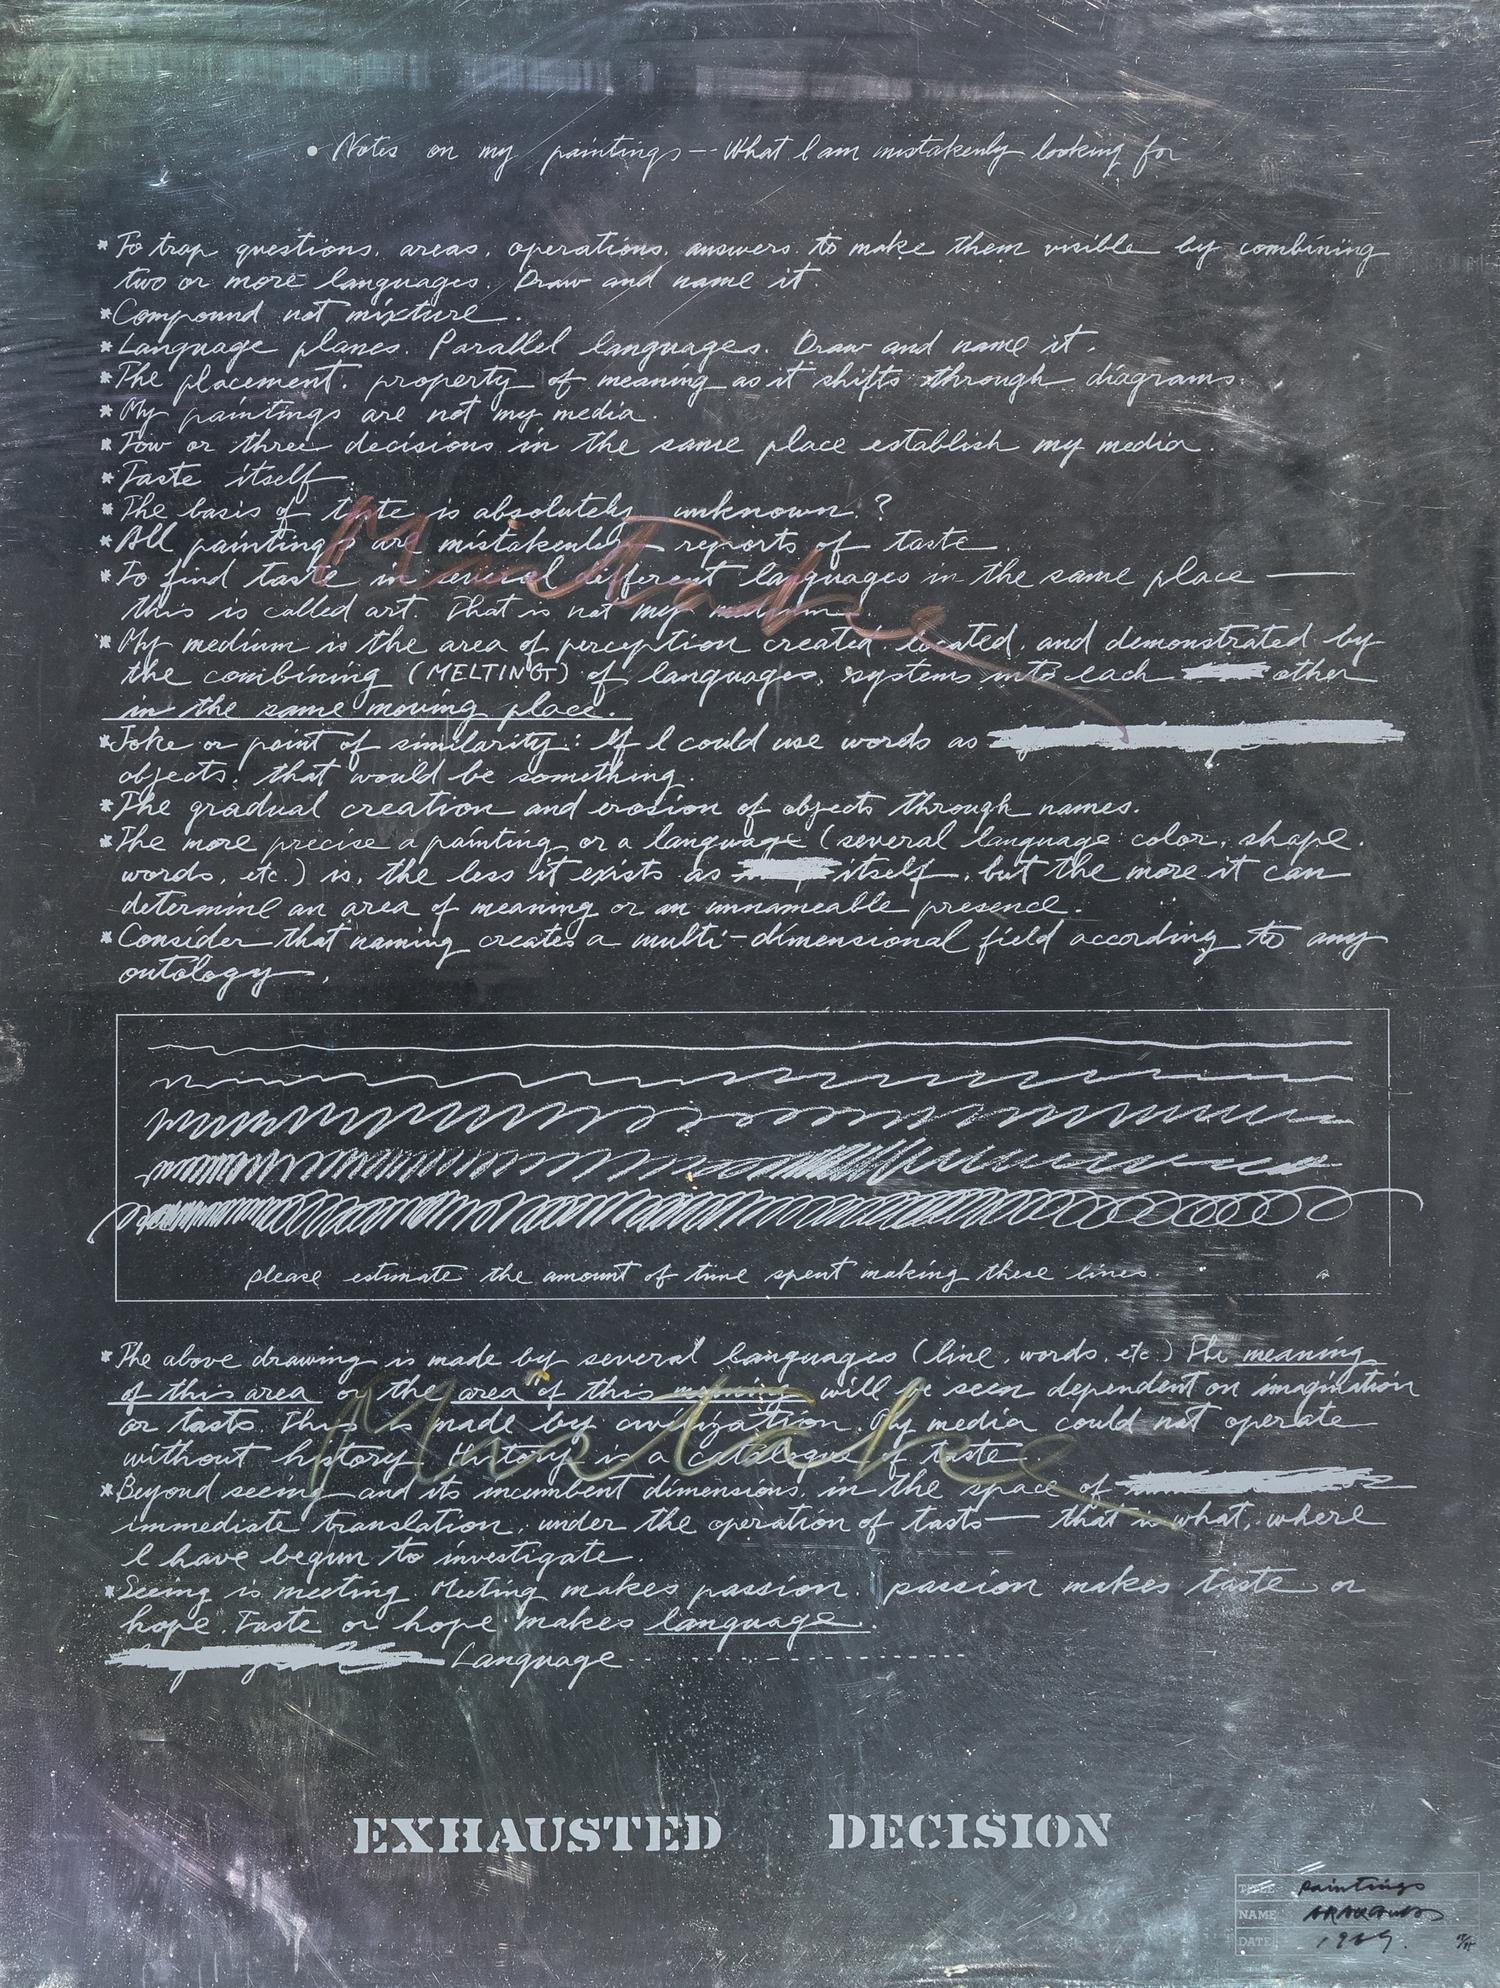 • Notes on my paintings -- What I am mistakenly looking for
* To trap questions, areas, operations, answers, to make them visible by combining
two or more languages. Draw and name it
* Compound not mixture.
* Language planes. Parallel languages. Draw and name it.
* The placement, property of meaning as it shifts through diagrams.
* My paintings are not my media.
* Tow or three decisions in the same place establish my media.
* Taste itself
* The basis of taste is absolutely unknown ?
* All paintings are mistakenly reports of taste
Mistake
* To find taste in several different languages in the same place —
this is called art. That is not my medium.
* My medium is the area of perception created, located, and demonstrated by
the combining (MELTING) of languages, systems into each other
in the same moving place.
* Joke or point of similarity: If I could use words as
objects, that would be something.
* The gradual creation and erosion of objects through names.
* The more precise a painting or a language (several language color, shape,
words, etc.) is, the less it exists as itself, but the more it can
determine an area of meaning or an unnameable presence.
* Consider that naming creates a multi-dimensional field according to any
ontology.
please estimate the amount of time spent making these lines.
* The above drawing is made by several languages (line, words, etc.) The meaning
of this area or the area of this meaning will be seen dependent on imagination
or taste. This is made by civilization. My media could not operate
Mistake
without history. History is a catalogue of taste
* Beyond seeing and its incumbent dimensions, in the space of
immediate translation, under the operation of taste — that is what, where
I have begun to investigate.
* Seeing is meeting. Meeting makes passion. passion makes taste or
hope. Taste or hope makes language.
Language - - - - - - - - - - - - - -
EXHAUSTED DECISION
TITLE Paintings
NAME ARAKAWA
DATE 1969.